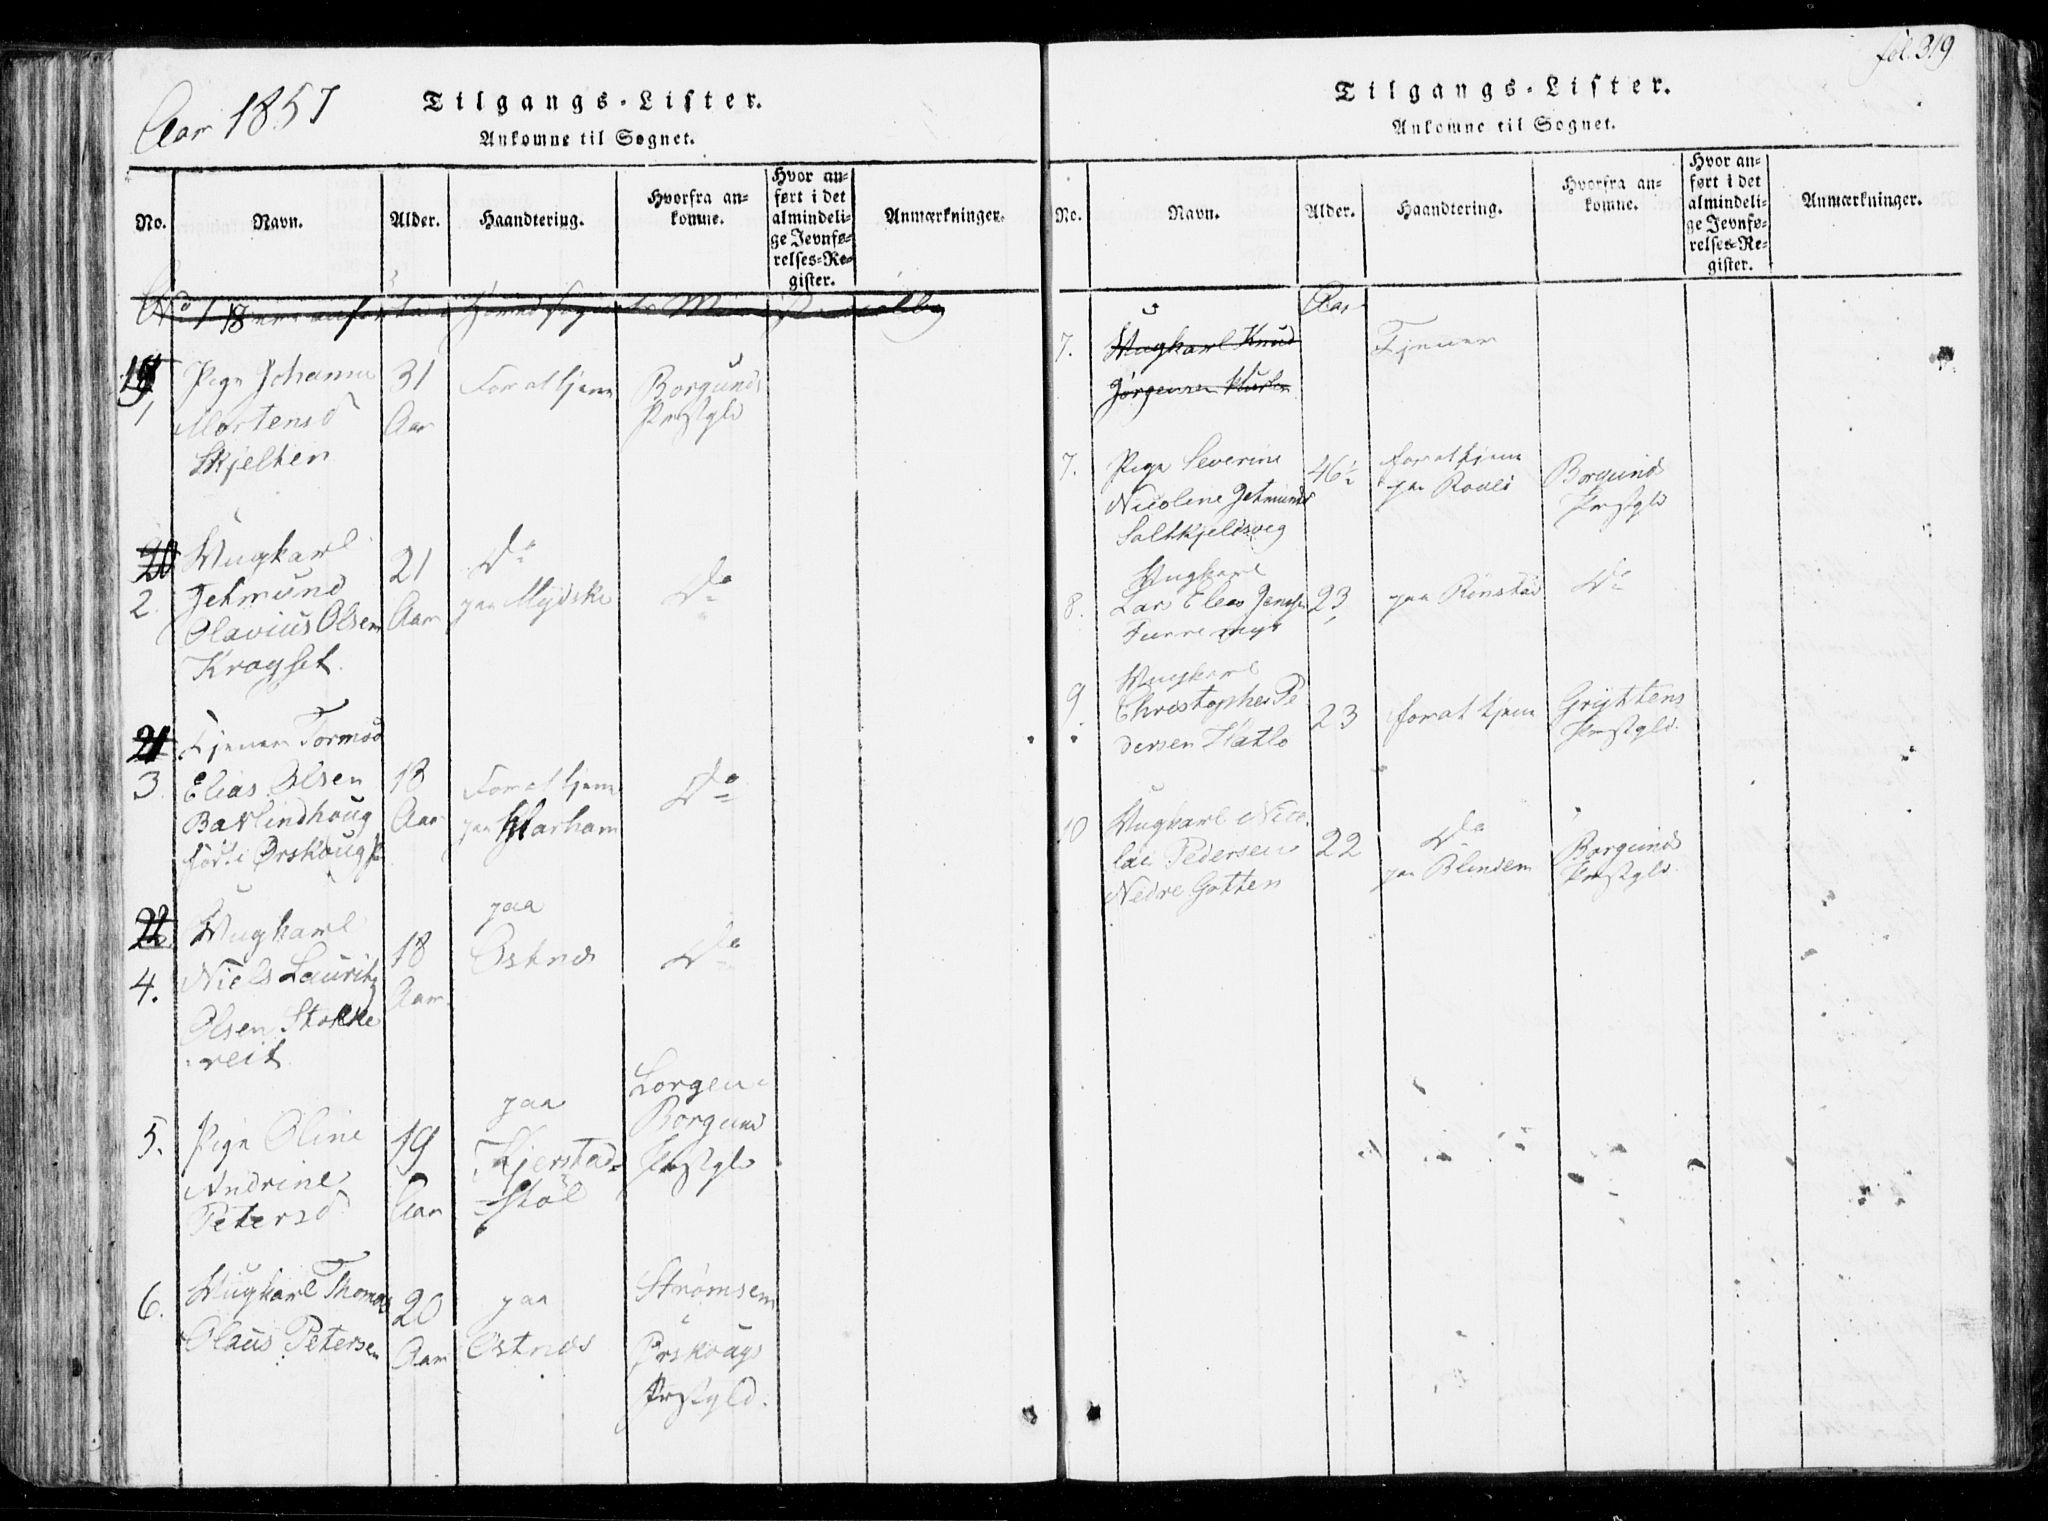 Aar 1857
Tilgangs-Lister.
Ankomne til Sognet.
No.
Navn.
Alder.
Haandtering.
Hvorfra an-
komne.
Hvor an-
ført i det
almindeli-
ge Jevnfø-
relses-Re-
gister.
Anmærkninger.
19
1
Pige Johanne
Mortensd
Skjelten
31
Aar
For at tjene
Borgunds
Prstgld
20
2.
Ungkarl
Jetmund
Olavius Olsen
Kragset.
21
Aar
Do
paa Mydske
Do
21
3.
Tjener Tormod
Elias Olsen
Barlindhoug
født i Ørskoug
18
Aar
For at tjene
paa Harham
Do
22
4.
Ungkarl
Niels Lauritz
Olsen Stokke
reit
18
Aar
paa
Østnes
Do
5.
Pige Oline
Andrine
Petersd
19
Aar
paa
Kjerstad-
støl
Lorgen
Borgund
Prstgld
6.
Ungkarl Thomas
Olaus Petersen
20
Aar
paa
Østnes
Strømsem
Ørskougs
Prstgld.
fol. 319
Tilgangs-Lister.
Ankomne til Sognet.
No.
Navn.
Alder.
Haandtering.
Hvorfra an-
komne.
Hvor an-
ført i det
almindeli-
ge Jevnfø-
relses-Re-
gister.
Anmærkninger.
Aar
7.
Ungkarl Knud
Jørgensen
Tjener
7.
Pige Severine
Nicoline Jetmunds
Saltkjelsvig
46½
for at tjene
paa Roald
Borgund
Prstgld
8.
Ungkarl
Lars Elias Jensen
Furremyr
23,
paa Rønstad
Do
9.
Ungkarl
Christopher Pe
dersen Hatlo
23
for at tjene
Gryttens
Prstgld.
10
Ungkarl Nico
lai Pedersen
Nedre Gotten
22
Do
paa Blindem
Borgund
Prstgld.